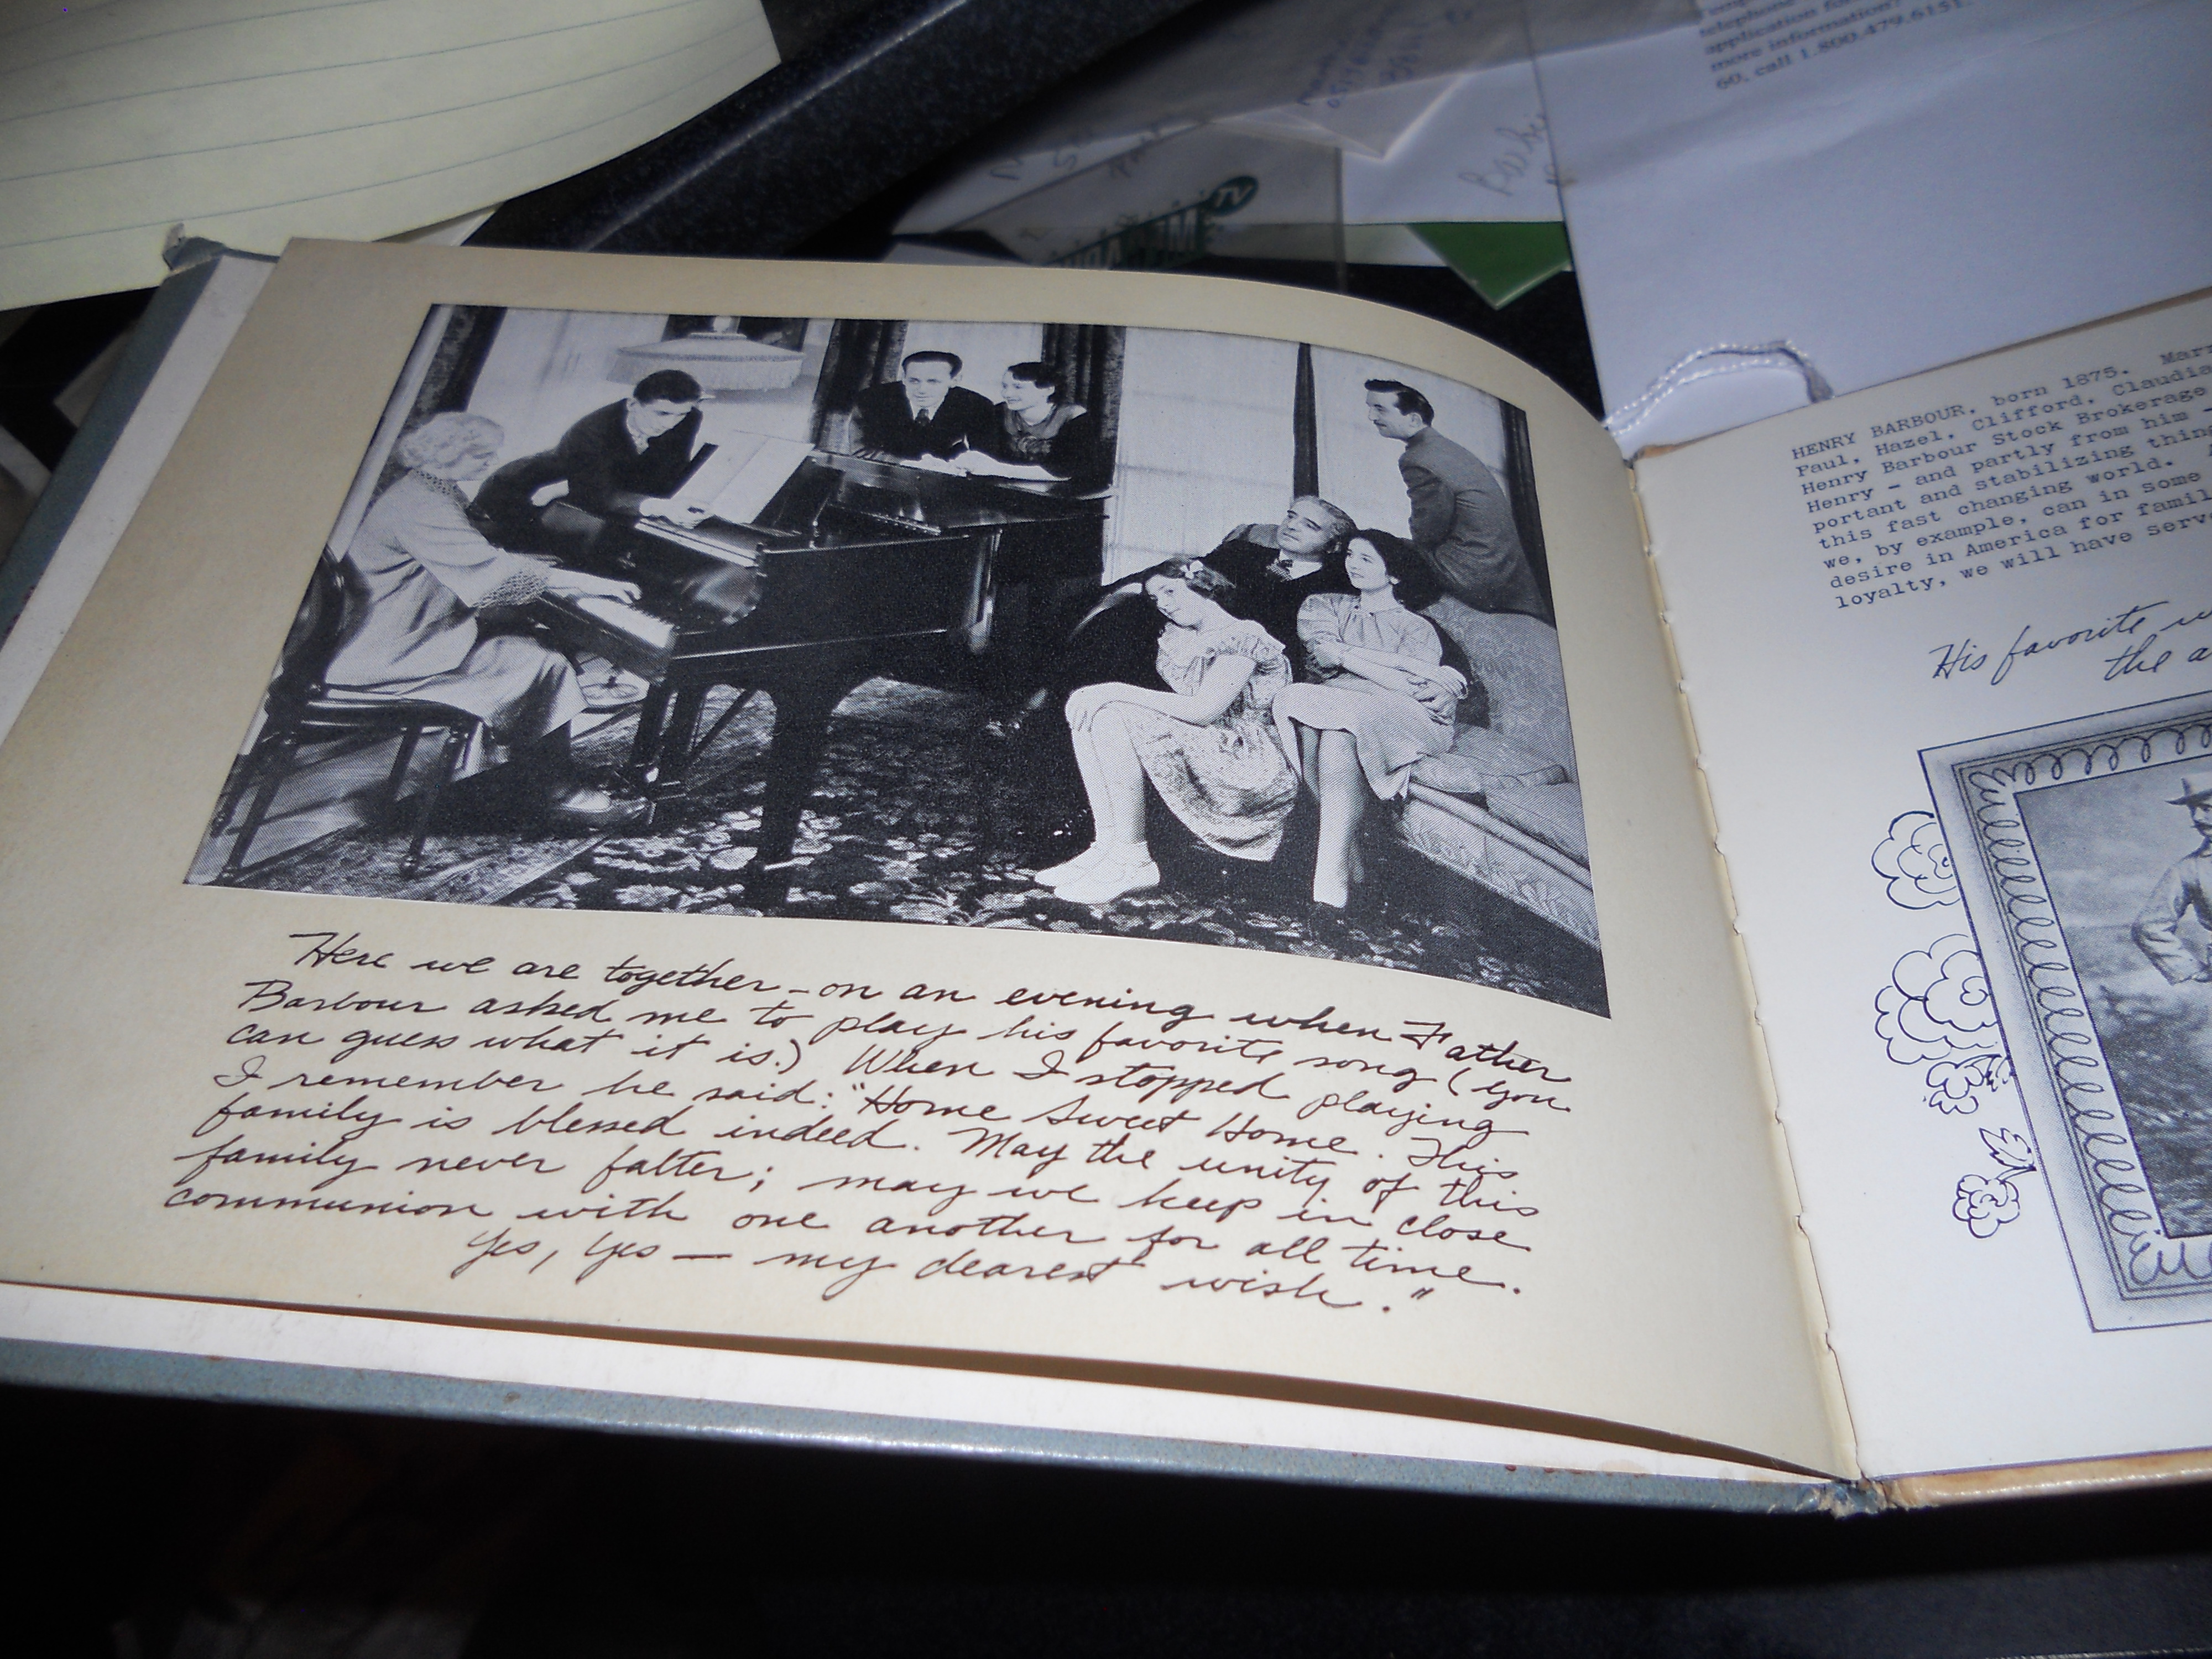 telephone
application for
more information?
60, call 1.800.479.6151.
TV
Here we are together - on an evening when Father
Barbour asked me to play his favorite song (you
can guess what it is.) When I stopped playing
I remember he said: "Home Sweet Home. This
family is blessed indeed. May the unity of this
family never falter; may we keep in close
communion with one another for all time.
Yes, yes — my dearest wish."
HENRY BARBOUR, born 1875.
Paul, Hazel, Clifford, Claudia
Henry Barbour Stock Brokerage
Henry - and partly from him -
portant and stabilizing thing
this fast changing world.
we, by example, can in some
desire in America for famil
loyalty, we will have serv
His favorite
the